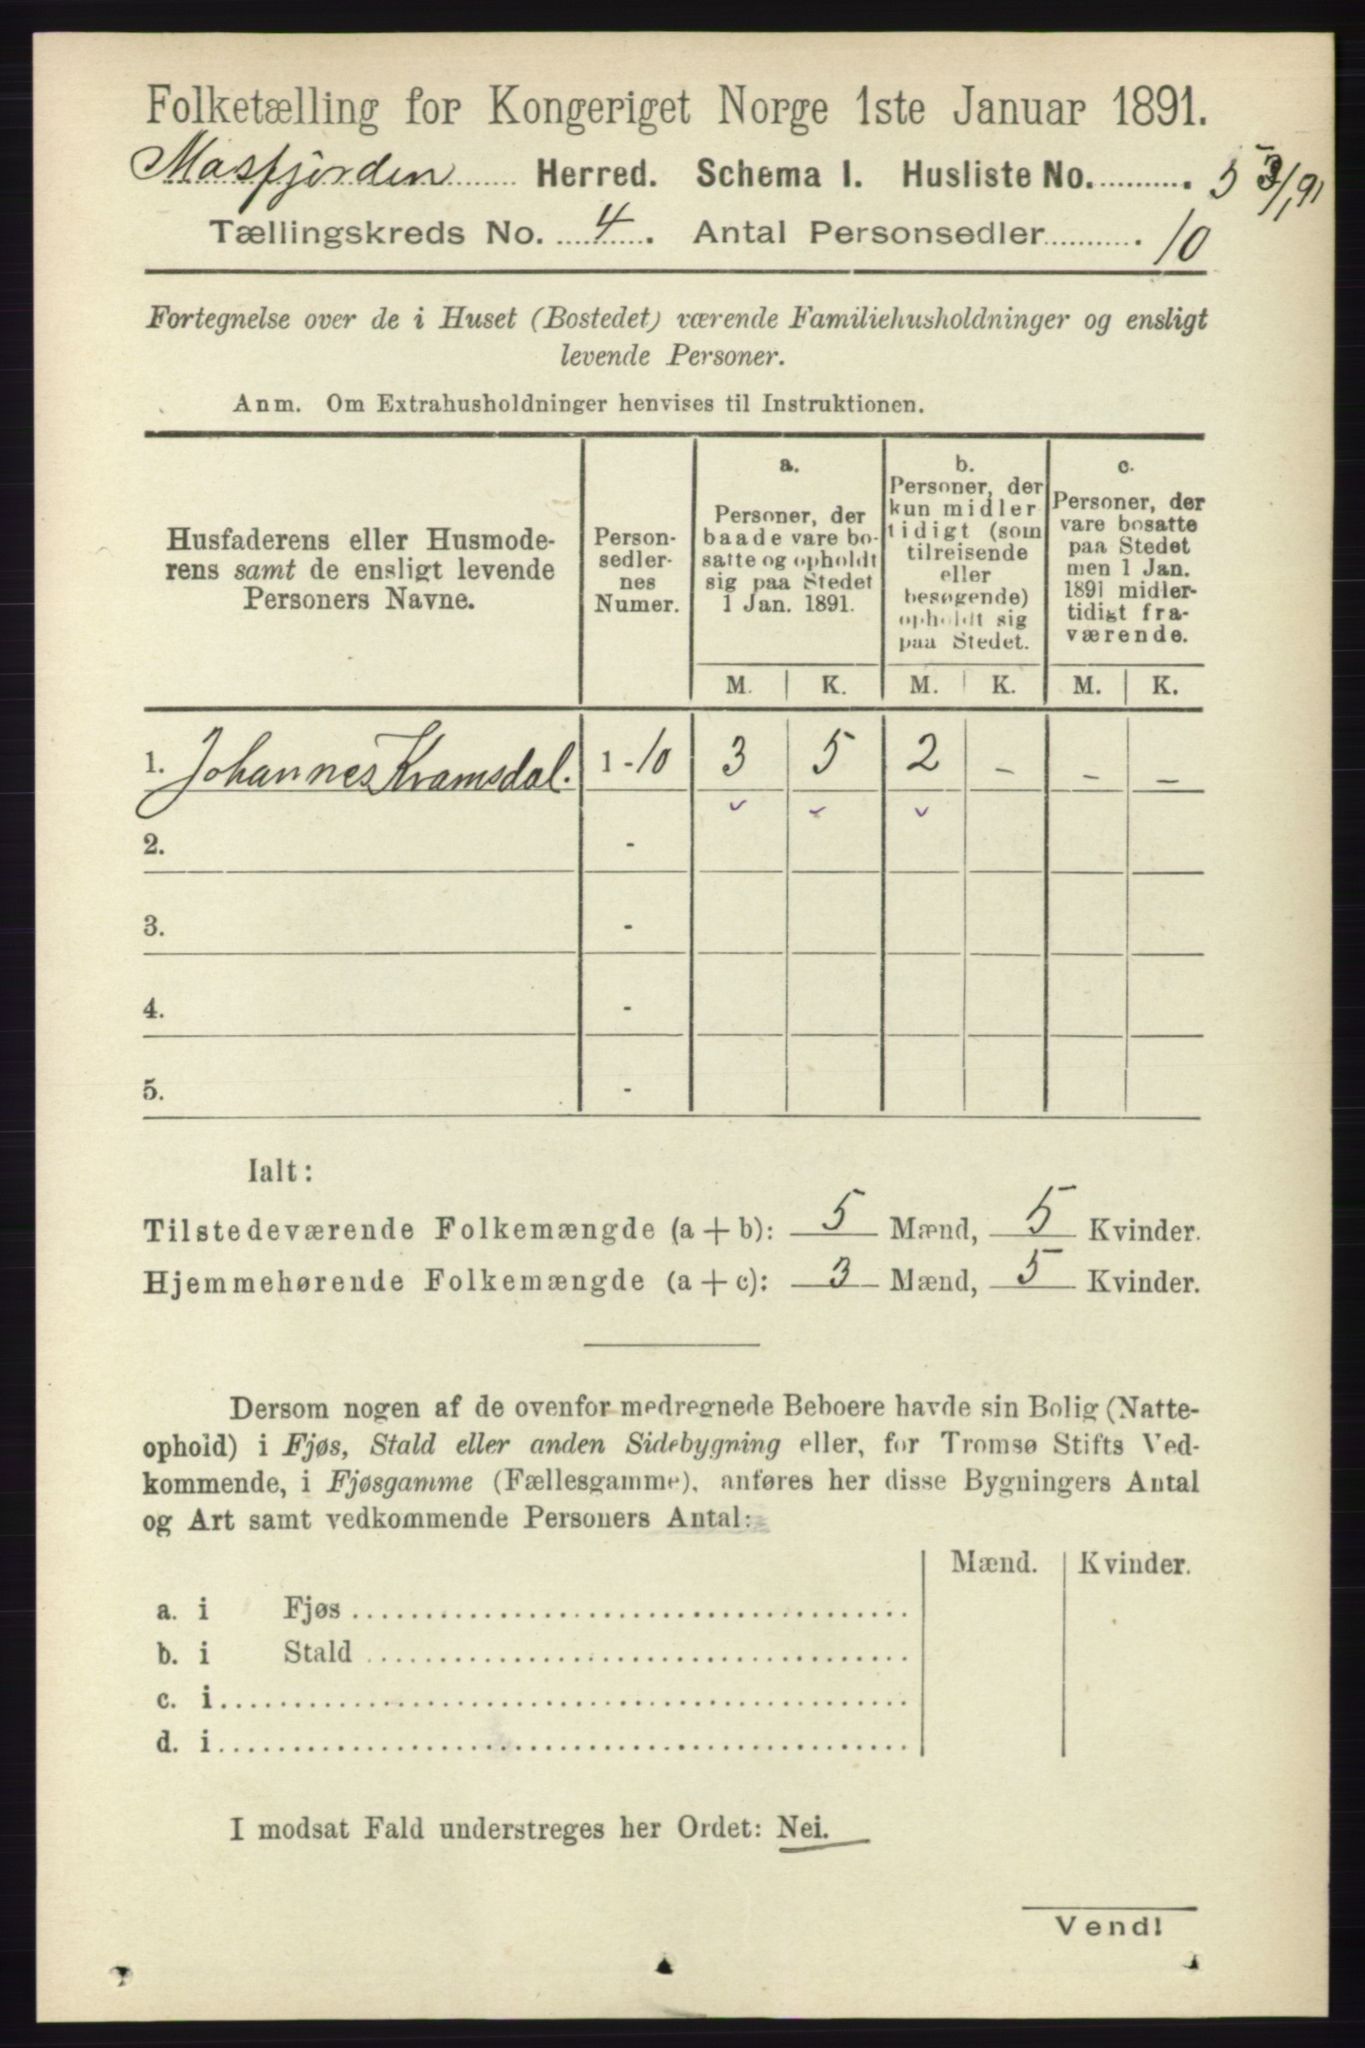 Folketælling for Kongeriget Norge 1ste Januar 1891.
Masfjorden Herred. Schema I. Husliste No. 5
Tællingskreds No. 4. Antal Personsedler 10
Fortegnelse over de i Huset (Bostedet) værende Familiehusholdninger og ensligt
levende Personer.
Anm. Om Extrahusholdninger henvises til Instruktionen.
Husfaderens eller Husmode-
rens samt de ensligt levende
Personers Navne.
Person-
sedler-
nes
Numer.
a.
Personer, der
baade vare bo-
satte og opholdt
sig paa Stedet
1 Jan. 1891.
b.
Personer, der
kun midler
tidigt (som
tilreisende
eller
besøgende)
opholdt sig
paa Stedet.
c.
Personer, der
vare bosatte
paa Stedet
men 1 Jan.
1891 midler-
tidigt fra-
værende.
M. K. M. K. M. K.
1. Johannes Kramsdal. 1-10 3 5 2 - - -
2. -
3. -
4. -
5. -
Ialt:
Tilstedeværende Folkemængde (a + b): 5 Mænd, 5 Kvinder.
Hjemmehørende Folkemængde (a + c): 3 Mænd, 5 Kvinder.
Dersom nogen af de ovenfor medregnede Beboere havde sin Bolig (Natte-
ophold) i Fjøs, Stald eller anden Sidebygning eller, for Tromsø Stifts Ved-
kommende, i Fjøsgamme (Fællesgamme), anføres her disse Bygningers Antal
og Art samt vedkommende Personers Antal:
Mænd. Kvinder.
a. i Fjøs
b. i Stald
c. i
d. i
I modsat Fald understreges her Ordet: Nei.
Vend!